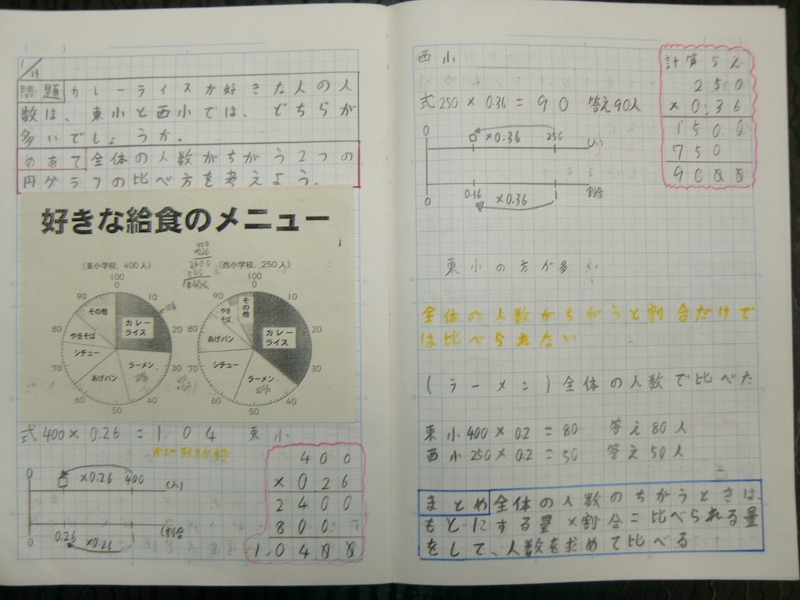 1/19
問題 カレーライスが好きな人の人
数は、東小と西小では、どちらが
多いでしょうか。
めあて 全体の人数がちがう2つの
円グラフの比べ方を考えよう。
好きな給食のメニュー
(東小学校、400人)
100
0
90
10
80
20
70
30
60
40
50
その他
カレー
ライス
やきそば
シチュー
あげパン
ラーメン
(西小学校、250人)
100
0
90
10
80
20
70
30
60
40
50
その他
やき
そば
カレー
ライス
あげパン
シチュー
ラーメン
式400×0.26=104 東小
0 □ ×0.26 400 (人)
0 0.26 ×0.26
400
×026
2400
800
1.0400
西小
式250×0.36=90 答え90人
0 □ ×0.36 250 (人)
0 0.36 ×0.36 割合
計算らん
250
×0.36
1500
750
9000
東小の方が多い
全体の人数がちがうと割合だけで
は比べられない
(ラーメン)全体の人数で比べた
東小400×0.2=80 答え80人
西小250×0.2=50 答え50人
まとめ 全体の人数のちがうときは、
もとにする量×割合=比べられる量
をして、人数を求めて比べる